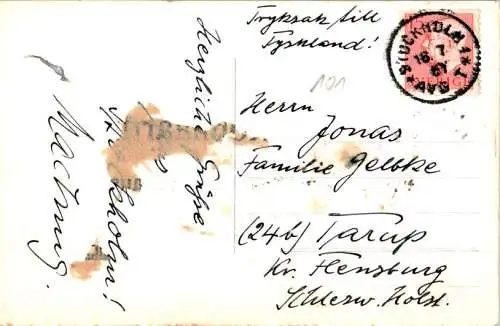 Herzliche Grüße
aus
Stockholm!
Trycksak till
Tyskland!
STOCKHOLM 1
16. 7
SVERIGE
101
Herrn
Jonas
Familie Gelbke
(24b) Tarup
Kr. Flensburg
Schlesw. Holst.